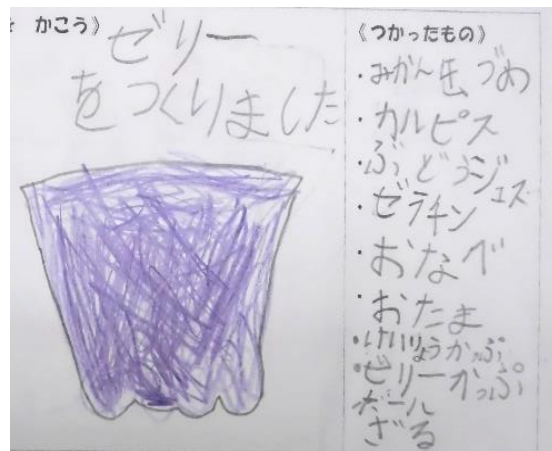 かこう》
ゼリー
をつくりました
《つかったもの》
・みかん缶づめ
・カルピス
・ぶどうジュース
・ゼラチン
・おなべ
・おたま
・けいりょうかっぷ
・ゼリーかっぷ
ボール
ざる